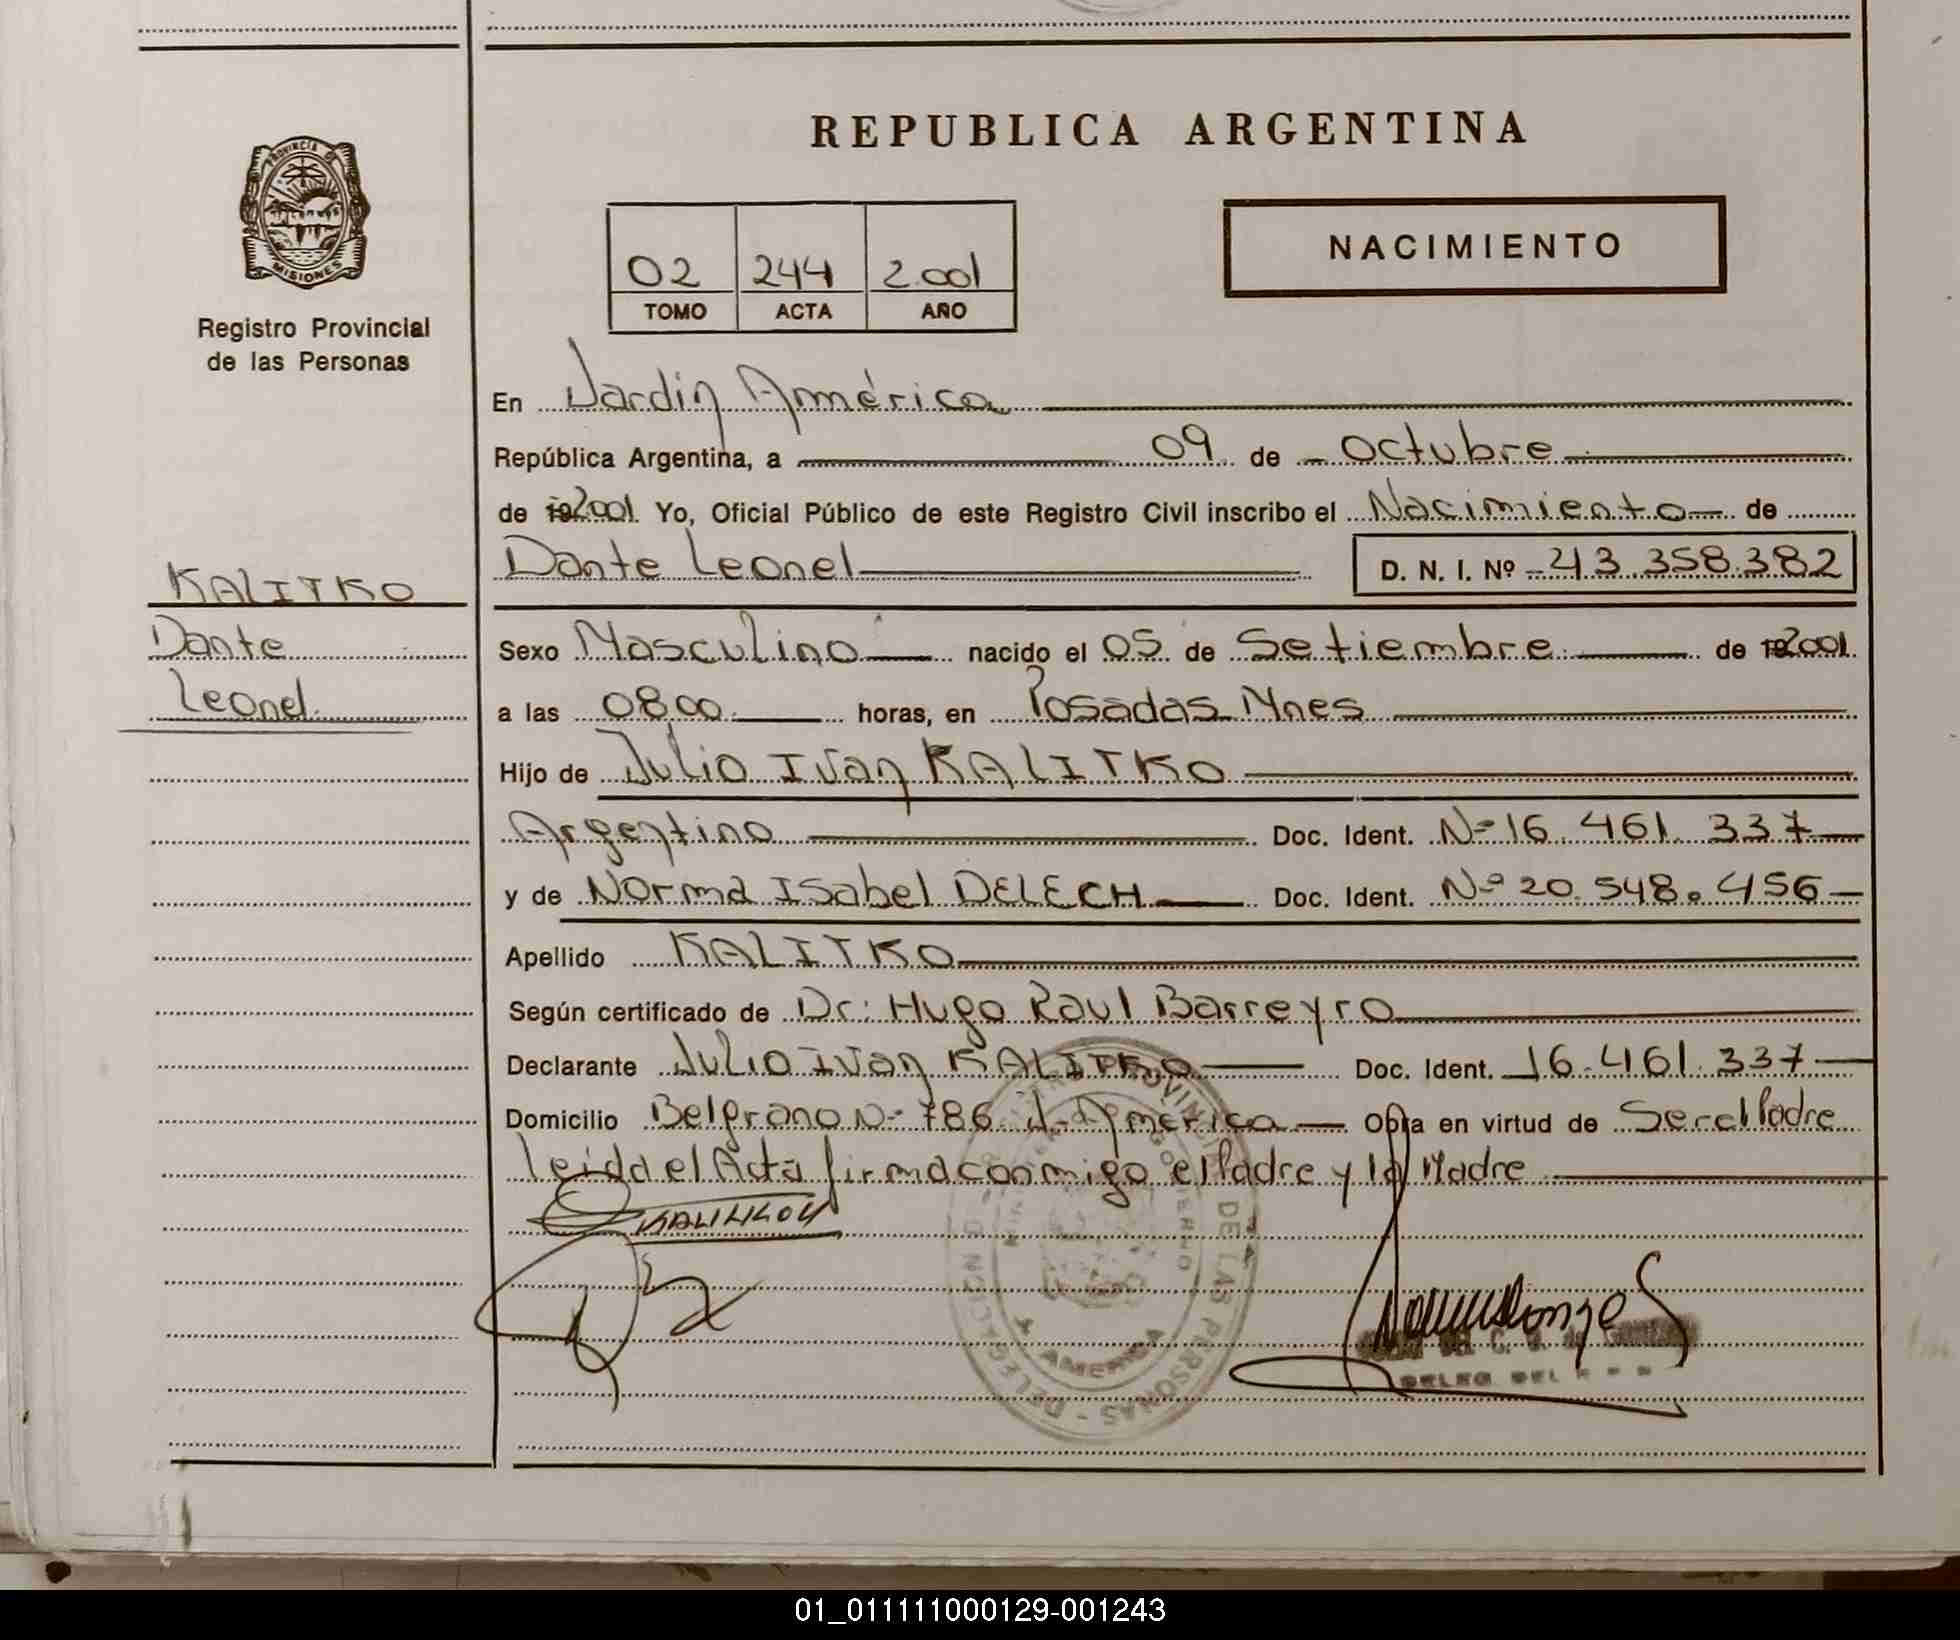 REPUBLICA ARGENTINA
PROVINCIA DE
MISIONES
Registro Provincial
de las Personas
NACIMIENTO
02 244 2.001
TOMO ACTA AÑO
En Jardin América
República Argentina, a 09 de Octubre
de 192001 Yo, Oficial Público de este Registro Civil inscribo el Nacimiento de
Dante Leonel D. N. I. Nº 43.358.382
KALITKO
Dante
Leonel
Sexo Masculino nacido el 05 de Setiembre de 192001
a las 08,00 horas, en Posadas Mnes
Hijo de Julio Ivan KALITKO
Argentino Doc. Ident. Nº 16.461.337
y de Norma Isabel DELECH Doc. Ident. Nº 20.548.456
Apellido KALITKO
Según certificado de Dr: Hugo Raul Barreyro
Declarante Julio Ivan KALITKO Doc. Ident. 16.461.337
Domicilio Belgrano Nº 786 J. América Obra en virtud de Ser el Padre
leida el Acta firma conmigo el Padre y la Madre
REGISTRO PROVINCIAL DE LAS PERSONAS - DELEGACION
AMERICA
01_011111000129-001243